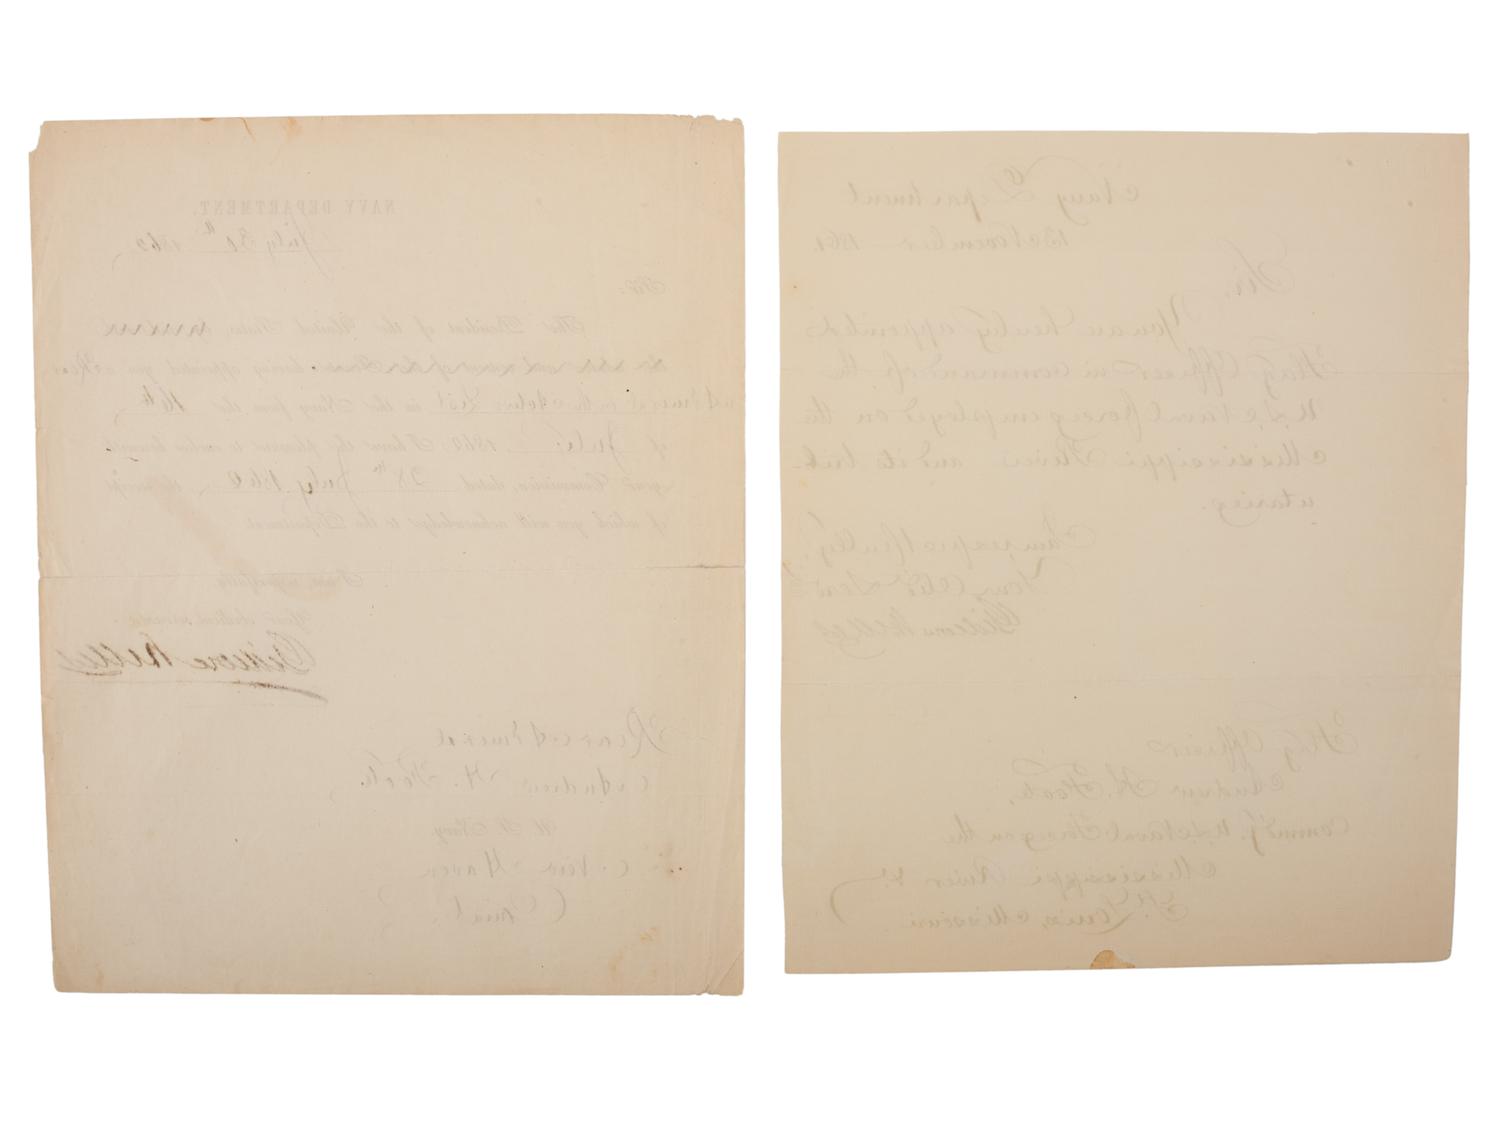 NAVY DEPARTMENT,
July 31th 1862
Sir:
The President of the United States,
having appointed you a Rear
Admiral on the Active List in the Navy from the 16th
of July 1862 I have the pleasure to enclose herewith
your Commission, dated 28th July 1862, the receipt
of which you will acknowledge to the Department.
I am, respectfully,
Your obedient servant,
Gideon Welles
Rear Admiral
Andrew H. Foote.
U. S. Navy
New Haven
Conn.
Navy Department
13 November 1861
Sir,
You are hereby appointed
Flag Officer in command of the
U.S. Naval forces employed on the
Mississippi River and its trib-
utaries.
I am respectfully,
Your Obd Servt
Gideon Welles
Flag Officer
Andrew H. Foote,
Comm'd'g. U.S. Naval Forces on the
Mississippi River &c
St. Louis, Missouri.